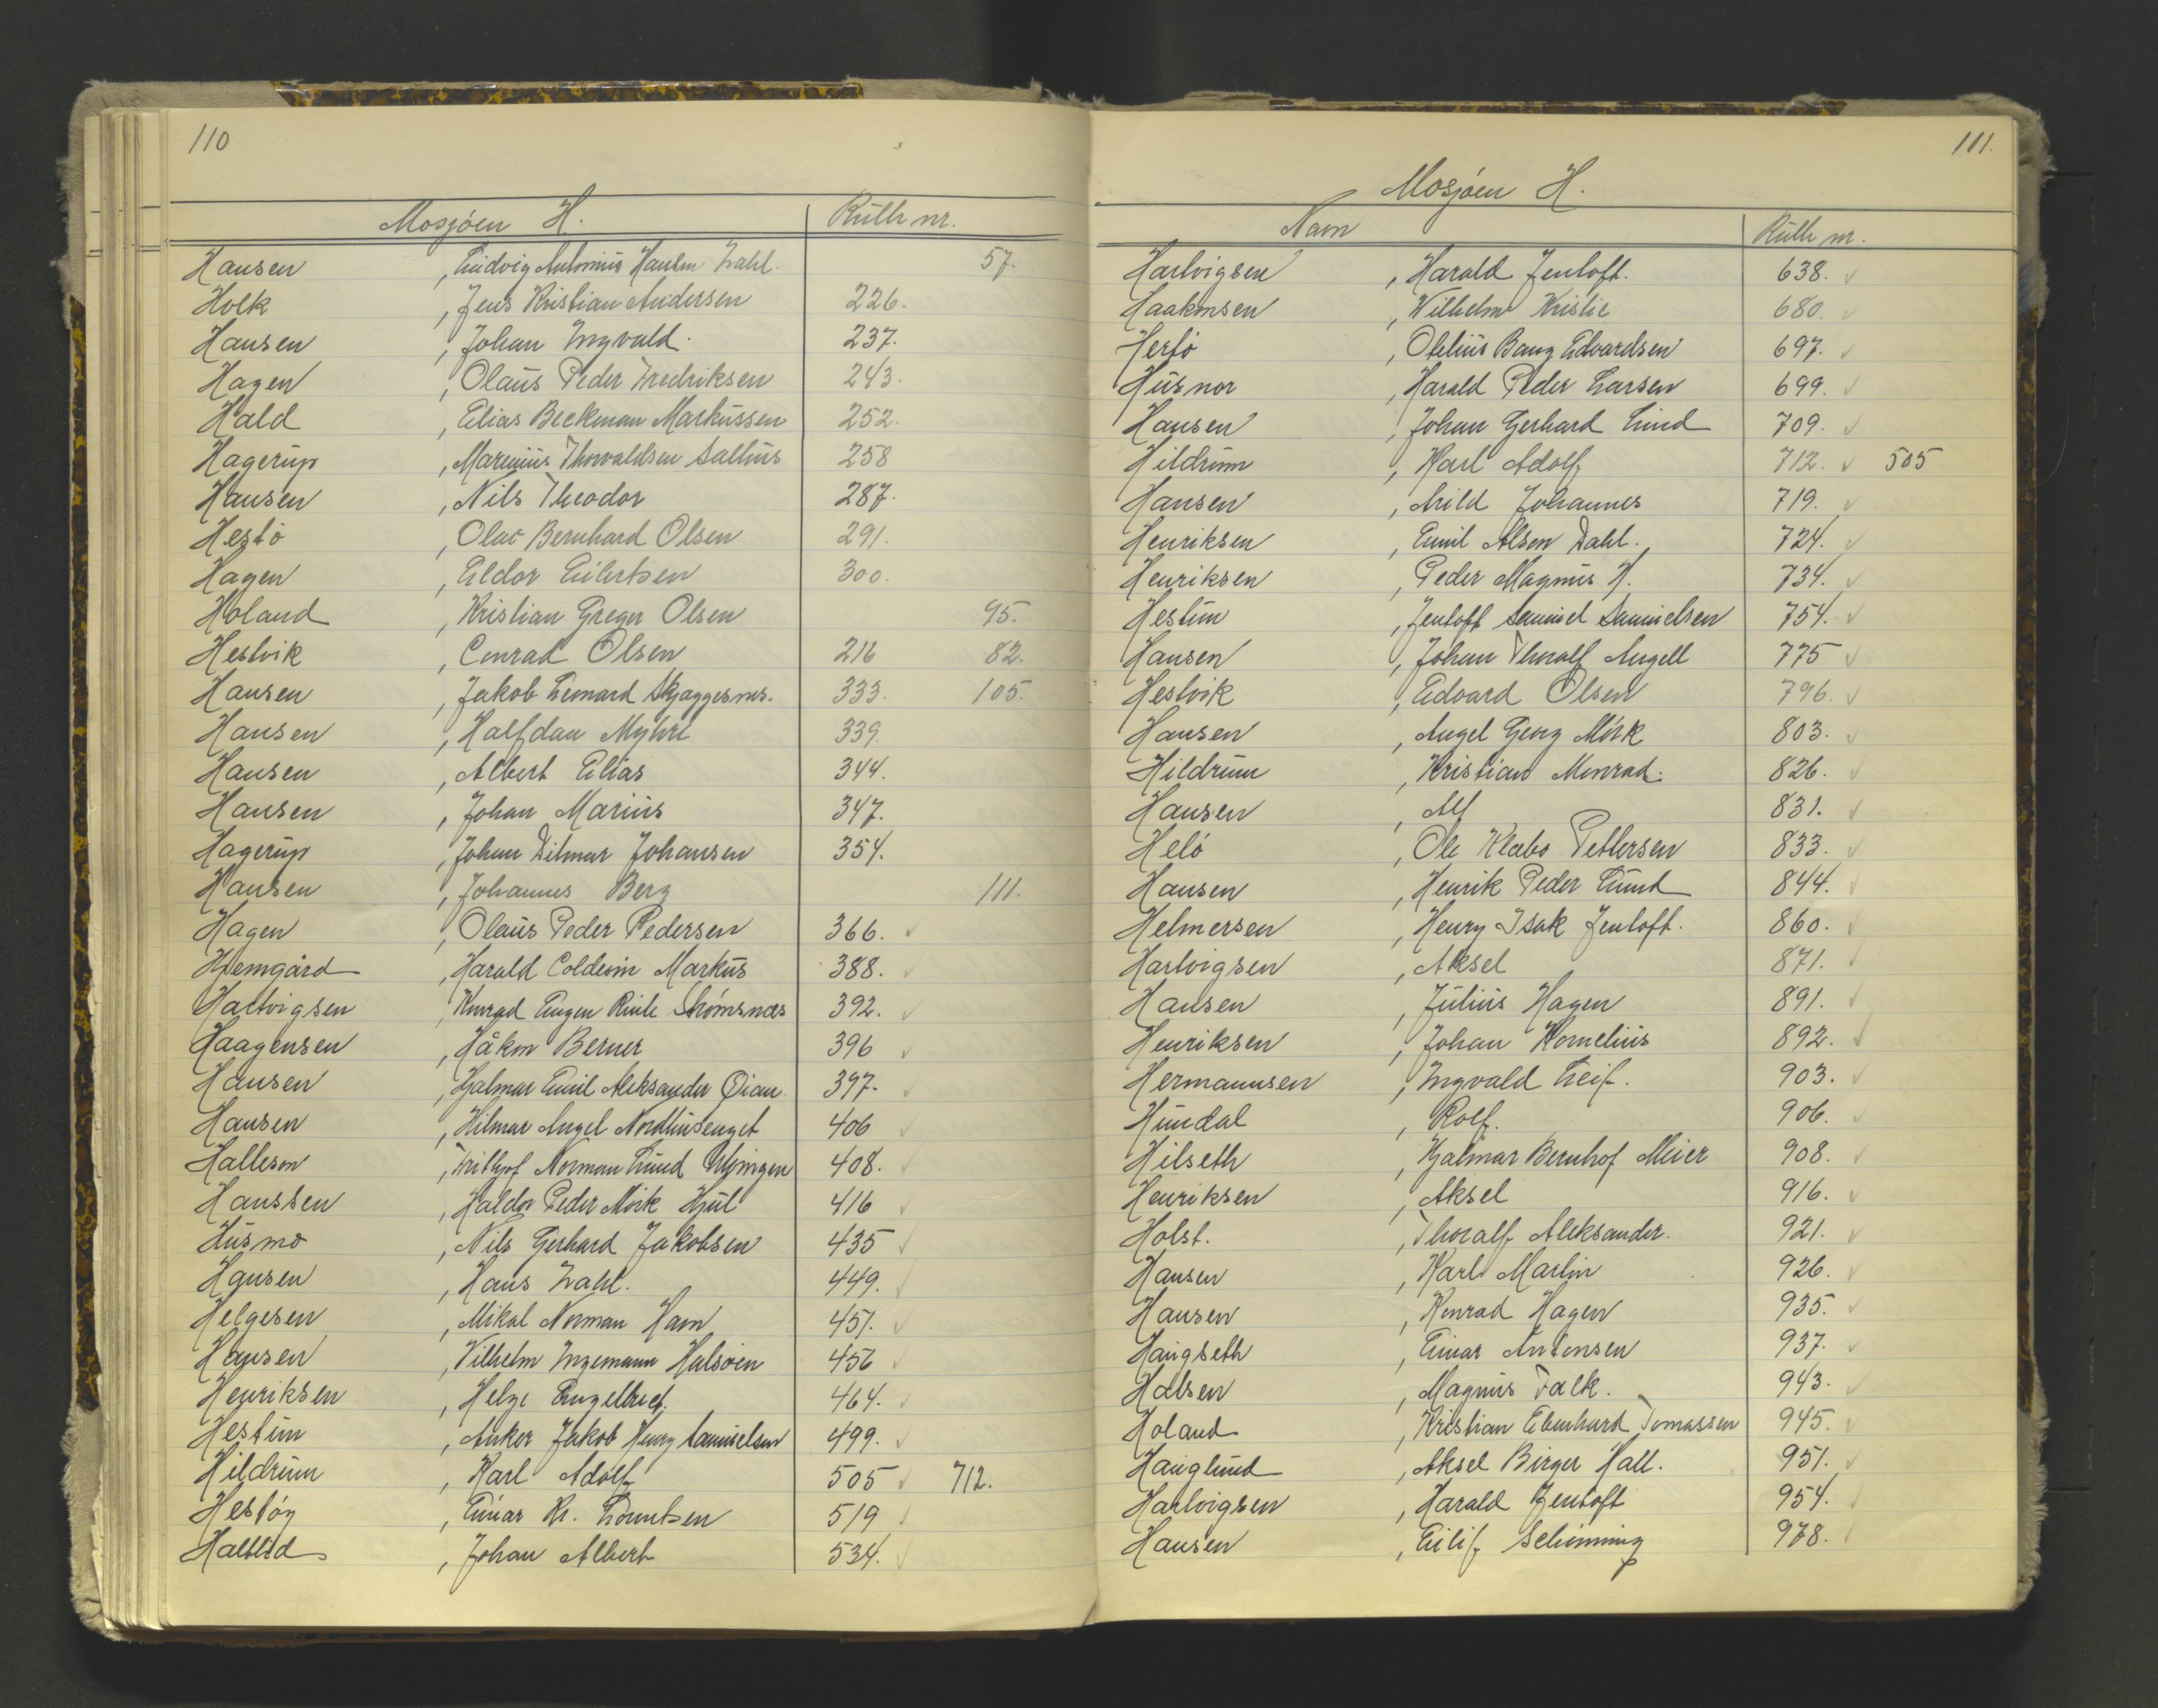 110
Mosjøen H. Rulle nr.
Hansen, Ludvig Antonius Hansen Dahl. 57.
Holk, Jens Kristian Andersen 226.
Hansen, Johan Ingvald. 237.
Hagen, Olaus Peder Fredriksen 243.
Hald, Elias Beckman Markussen 252.
Hagerup, Marenius Thorvaldsen 258
Hansen, Nils Theodor 287.
Hestø, Olav Bernhard Olsen 291.
Hagen, Eldor Eilertsen 300.
Holand, Kristian Greger Olsen 95.
Hestvik, Conrad Olsen 216 82.
Hansen, Jakob Lenard Skjaggesnes. 333. 105.
Hansen, Halfdan Myhre 339.
Hansen, Albert Elias 344.
Hansen, Johan Marius 347.
Hagerup, Johan Dilmar Johansen 354.
Hansen, Johannes Berg 111.
Hagen, Olaus Peder Pedersen 366. ✓
Hjemgård, Harald Coldevin Markus 388. ✓
Hartvigsen, Konrad Eugen Strømsnæs 392. ✓
Haagensen, Håkon Berner 396 ✓
Hansen, Hjalmar Emil Aleksander Øian 397. ✓
Hansen, Hilmar Angel Nordhusenget 406 ✓
Halleson, Frithjof Norman Lund 408. ✓
Hanssen, Haldor Peder Mørk Hjul 416 ✓
Husmo, Nils Gerhard Jakobsen 435 ✓
Hansen, Hans Dahl. 449. ✓
Helgesen, Mikal Norman Ham 451. ✓
Hansen, Vilhelm Ingemann Halsøien 456 ✓
Henriksen, Helge Engelbret. 464. ✓
Hestun, Anker Jakob Henry Samuelsen 499. ✓
Hildrum, Karl Adolf 505 ✓ 712.
Hestøy, Einar Kr. Lorentsen 519 ✓
Haltlid, Johan Albert 534. ✓
111.
Mosjøen H.
Navn Rulle nr.
Hartvigsen, Harald Jentoft. 638. ✓
Haakonsen, Wilhelm Kristie 680. ✓
Hertø, Otelius Bang Edvardsen 697. ✓
Husnor, Harald Peder Larsen 699. ✓
Hansen, Johan Gerhard Lund 709. ✓
Hildrum, Karl Adolf 712. ✓ 505
Hansen, Arild Johannes 719. ✓
Henriksen, Emil Olsen Dahl. 724. ✓
Henriksen, Peder Magnus H. 734. ✓
Hestun, Jentoft Samuel Samuelsen 754. ✓
Hansen, Johan Thoralf Angell 775 ✓
Hestvik, Edvard Olsen 796. ✓
Hansen, Angel Georg Mørk 803. ✓
Hildrum, Kristian Monrad. 826. ✓
Hansen, Alf 831. ✓
Helø, Ole Klæbo Pettersen 833. ✓
Hansen, Henrik Peder Lund 844. ✓
Helmersen, Henry Isak Jentoft. 860. ✓
Hartvigsen, Aksel 871. ✓
Hansen, Julius Hagen 891. ✓
Henriksen, Johan Kornelius 892. ✓
Hermannsen, Ingvald Leif. 903. ✓
Hundal, Rolf. 906. ✓
Hilseth, Hjalmar Bernhof Meier 908. ✓
Henriksen, Aksel 916. ✓
Holst., Thoralf Aleksander. 921. ✓
Hansen, Karl Martin 926. ✓
Hansen, Konrad Hagen 935. ✓
Haugseth, Einar Antonsen 937. ✓
Halsen, Magnus Falk. 943. ✓
Holand, Kristian Edvard Tomassen 945. ✓
Hauglund, Aksel Birger Hall. 951. ✓
Hartvigsen, Harald Jentoft 954. ✓
Hansen, Eilif Schinning 978. ✓